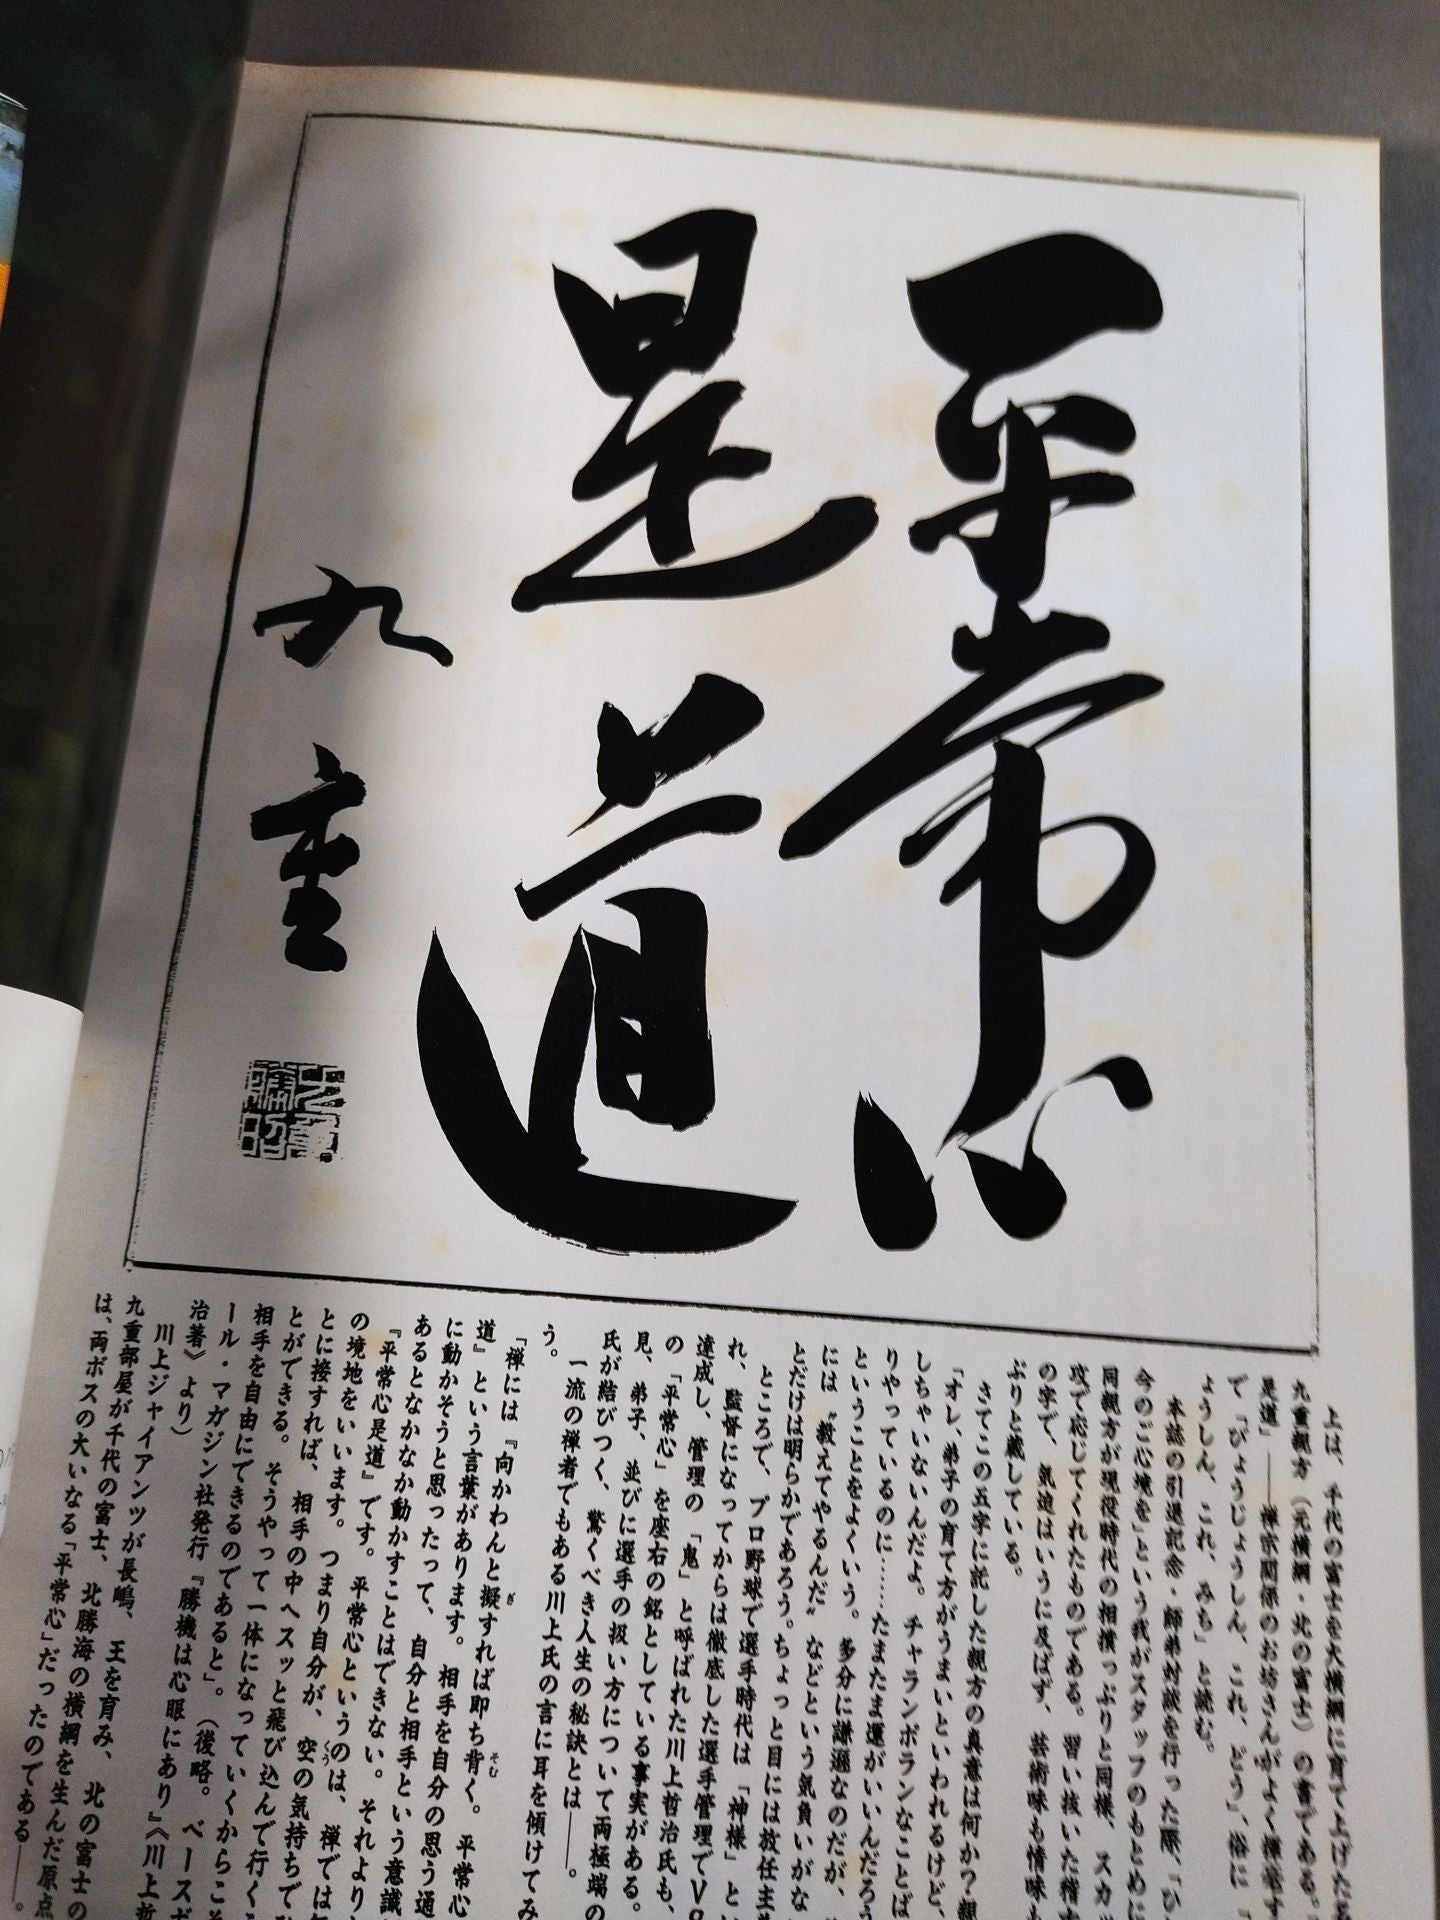 平常心
是道
九重
上は、千代の富士を大横綱に育て上げた
九重親方（元横綱・北の富士）の書である。
是道」――禅宗関係のお坊さんがよく揮毫す
で「びょうじょうしん、これ、どう」、俗に「
ょうしん、これ、みち」と読む。
本誌の引退記念・師弟対談を行った際、「ひ
今のご心境を」という我がスタッフのもとめに
同親方が現役時代の相撲っぷりと同様、スカッ
攻で応じてくれたものである。習い抜いた
の字で、気迫はいうに及ばず、芸術味も情味も
ぷりと戴している。
さてこの五字に託した親方の真意は何か？親
「オレ、弟子の育て方がうまいといわれるけど、
しちゃいないんだよ。チャランポランなことば
りやっているのに……たまたま運がいいんだろう
ということをよくいう。多分に謙遜なのだが、
には〝教えてやるんだ〟などという気負いがな
とだけは明らかであろう。ちょっと目には放任主
ところで、プロ野球で選手時代は「神様」と
れ、監督になってからは徹底した選手管理でV
達成し、管理の「鬼」と呼ばれた川上哲治氏も、
の「平常心」を座右の銘としている事実がある。
見、弟子、並びに選手の扱い方について両極端の
氏が結びつく、驚くべき人生の秘訣とは――。
一流の禅者でもある川上氏の言に耳を傾けてみ
う。
「禅には『向かわんと擬すれば即ち背く。平常心
道』という言葉があります。相手を自分の思う通
に動かそうと思ったって、自分と相手という意識
あるとなかなか動かすことはできない。それより
『平常心是道』です。平常心というのは、禅では
の境地をいいます。つまり自分が、空の気持ちで
とに接すれば、相手の中へスッと飛び込んで行く
とができる。そうやって一体になっていくからこそ
相手を自由にできるのであると」。（後略。ベースボ
ール・マガジン社発行『勝機は心眼にあり』《川上哲
治著》より）
川上ジャイアンツが長嶋、王を育み、北の富士の
九重部屋が千代の富士、北勝海の横綱を生んだ原点
は、両ボスの大いなる「平常心」だったのである――。